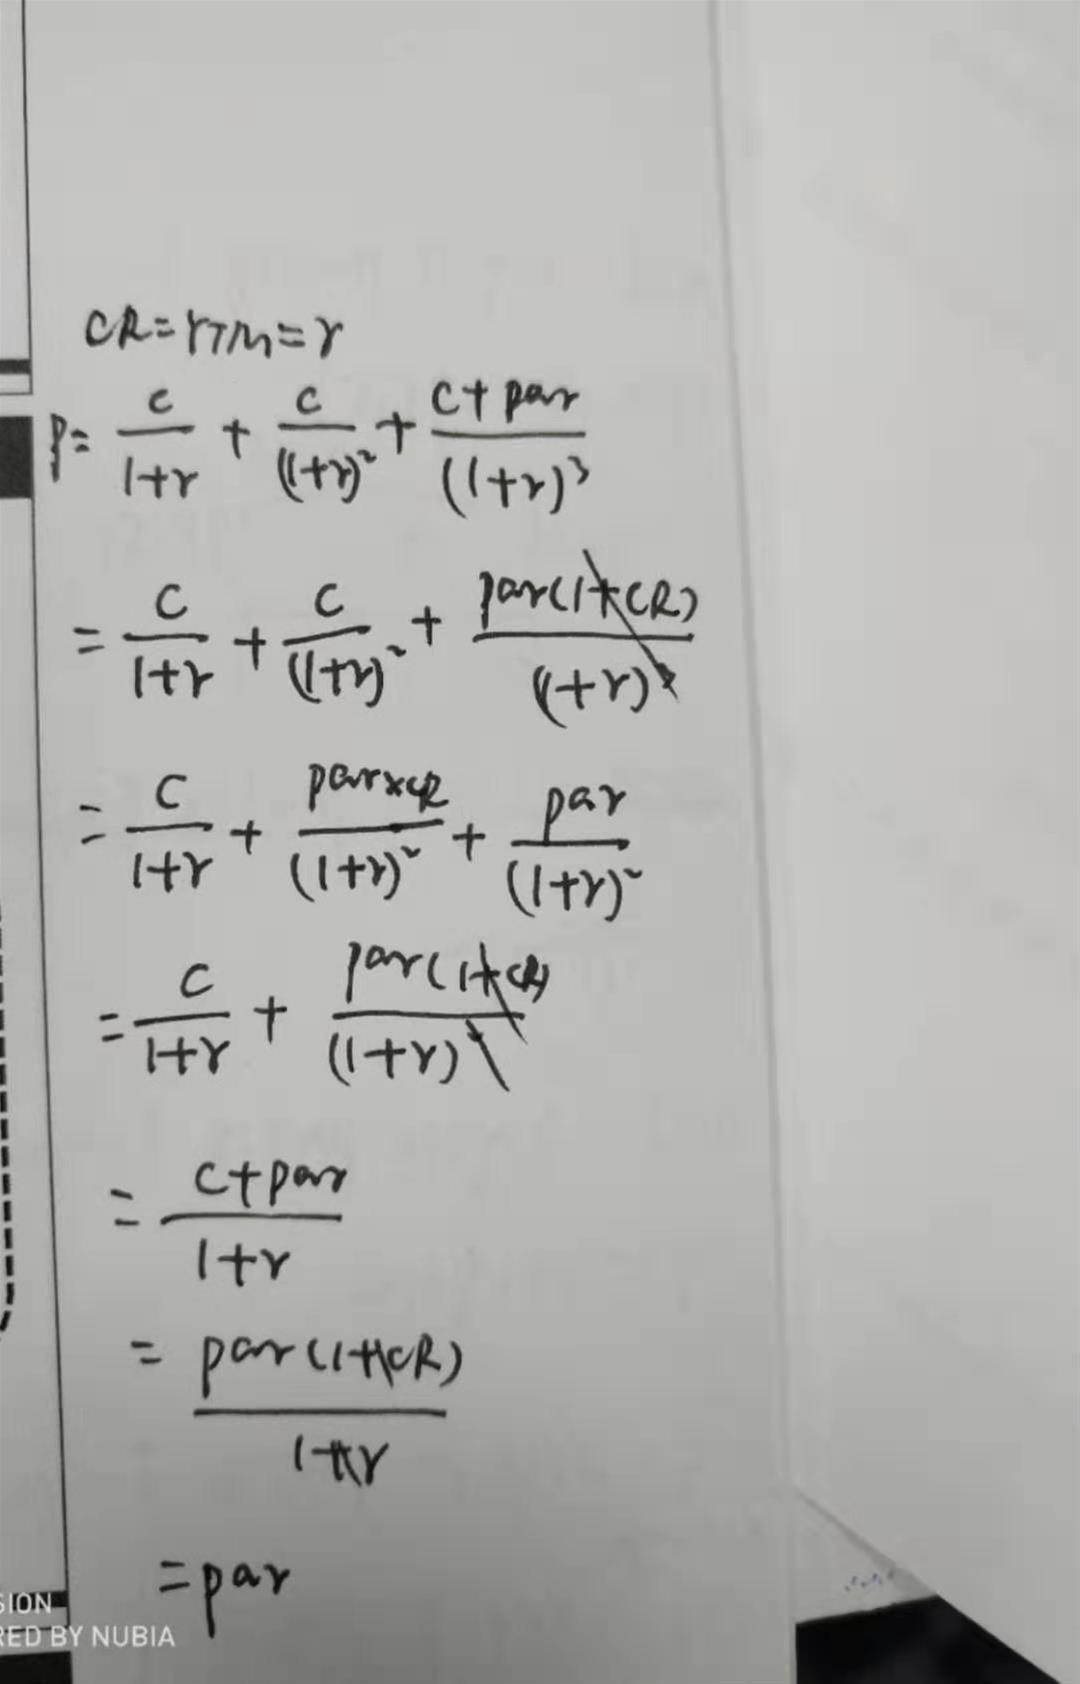 CR=YTM=r
P= c/(1+r) + c/(1+r)² + (c+par)/(1+r)³
= c/(1+r) + c/(1+r)² + par(1+CR)/(1+r)³
= c/(1+r) + par×CR/(1+r)² + par/(1+r)²
= c/(1+r) + par(1+CR)/(1+r)²
= (c+par)/(1+r)
= par(1+CR)/(1+r)
=par
SION
RED BY NUBIA